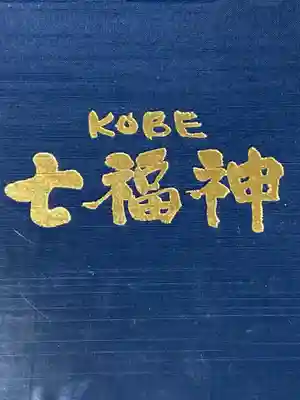 KOBE
七福神